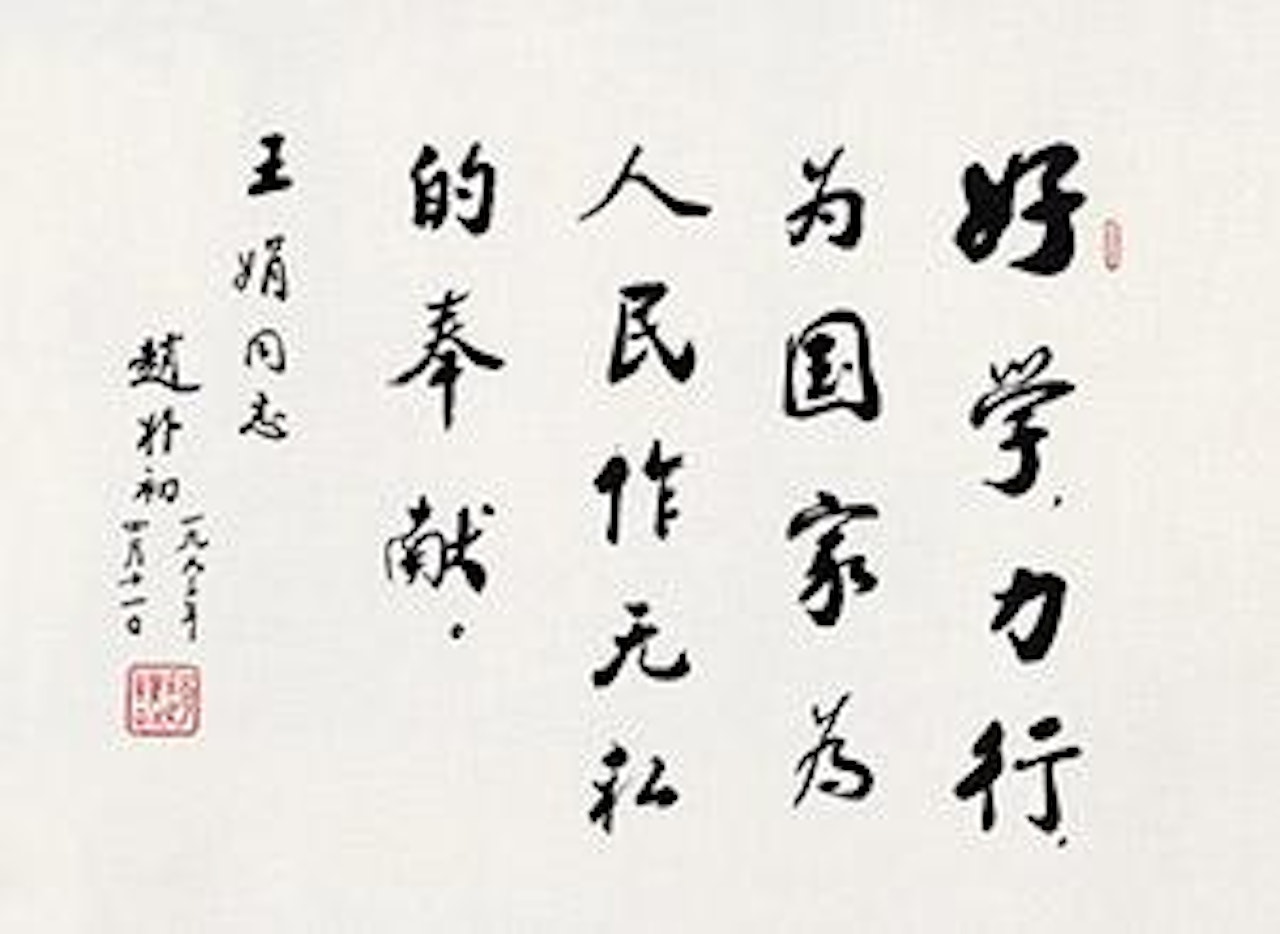 好学，力行，
为国家為
人民作无私
的奉献。
王娟同志
趙朴初
一九九三年
四月十一日